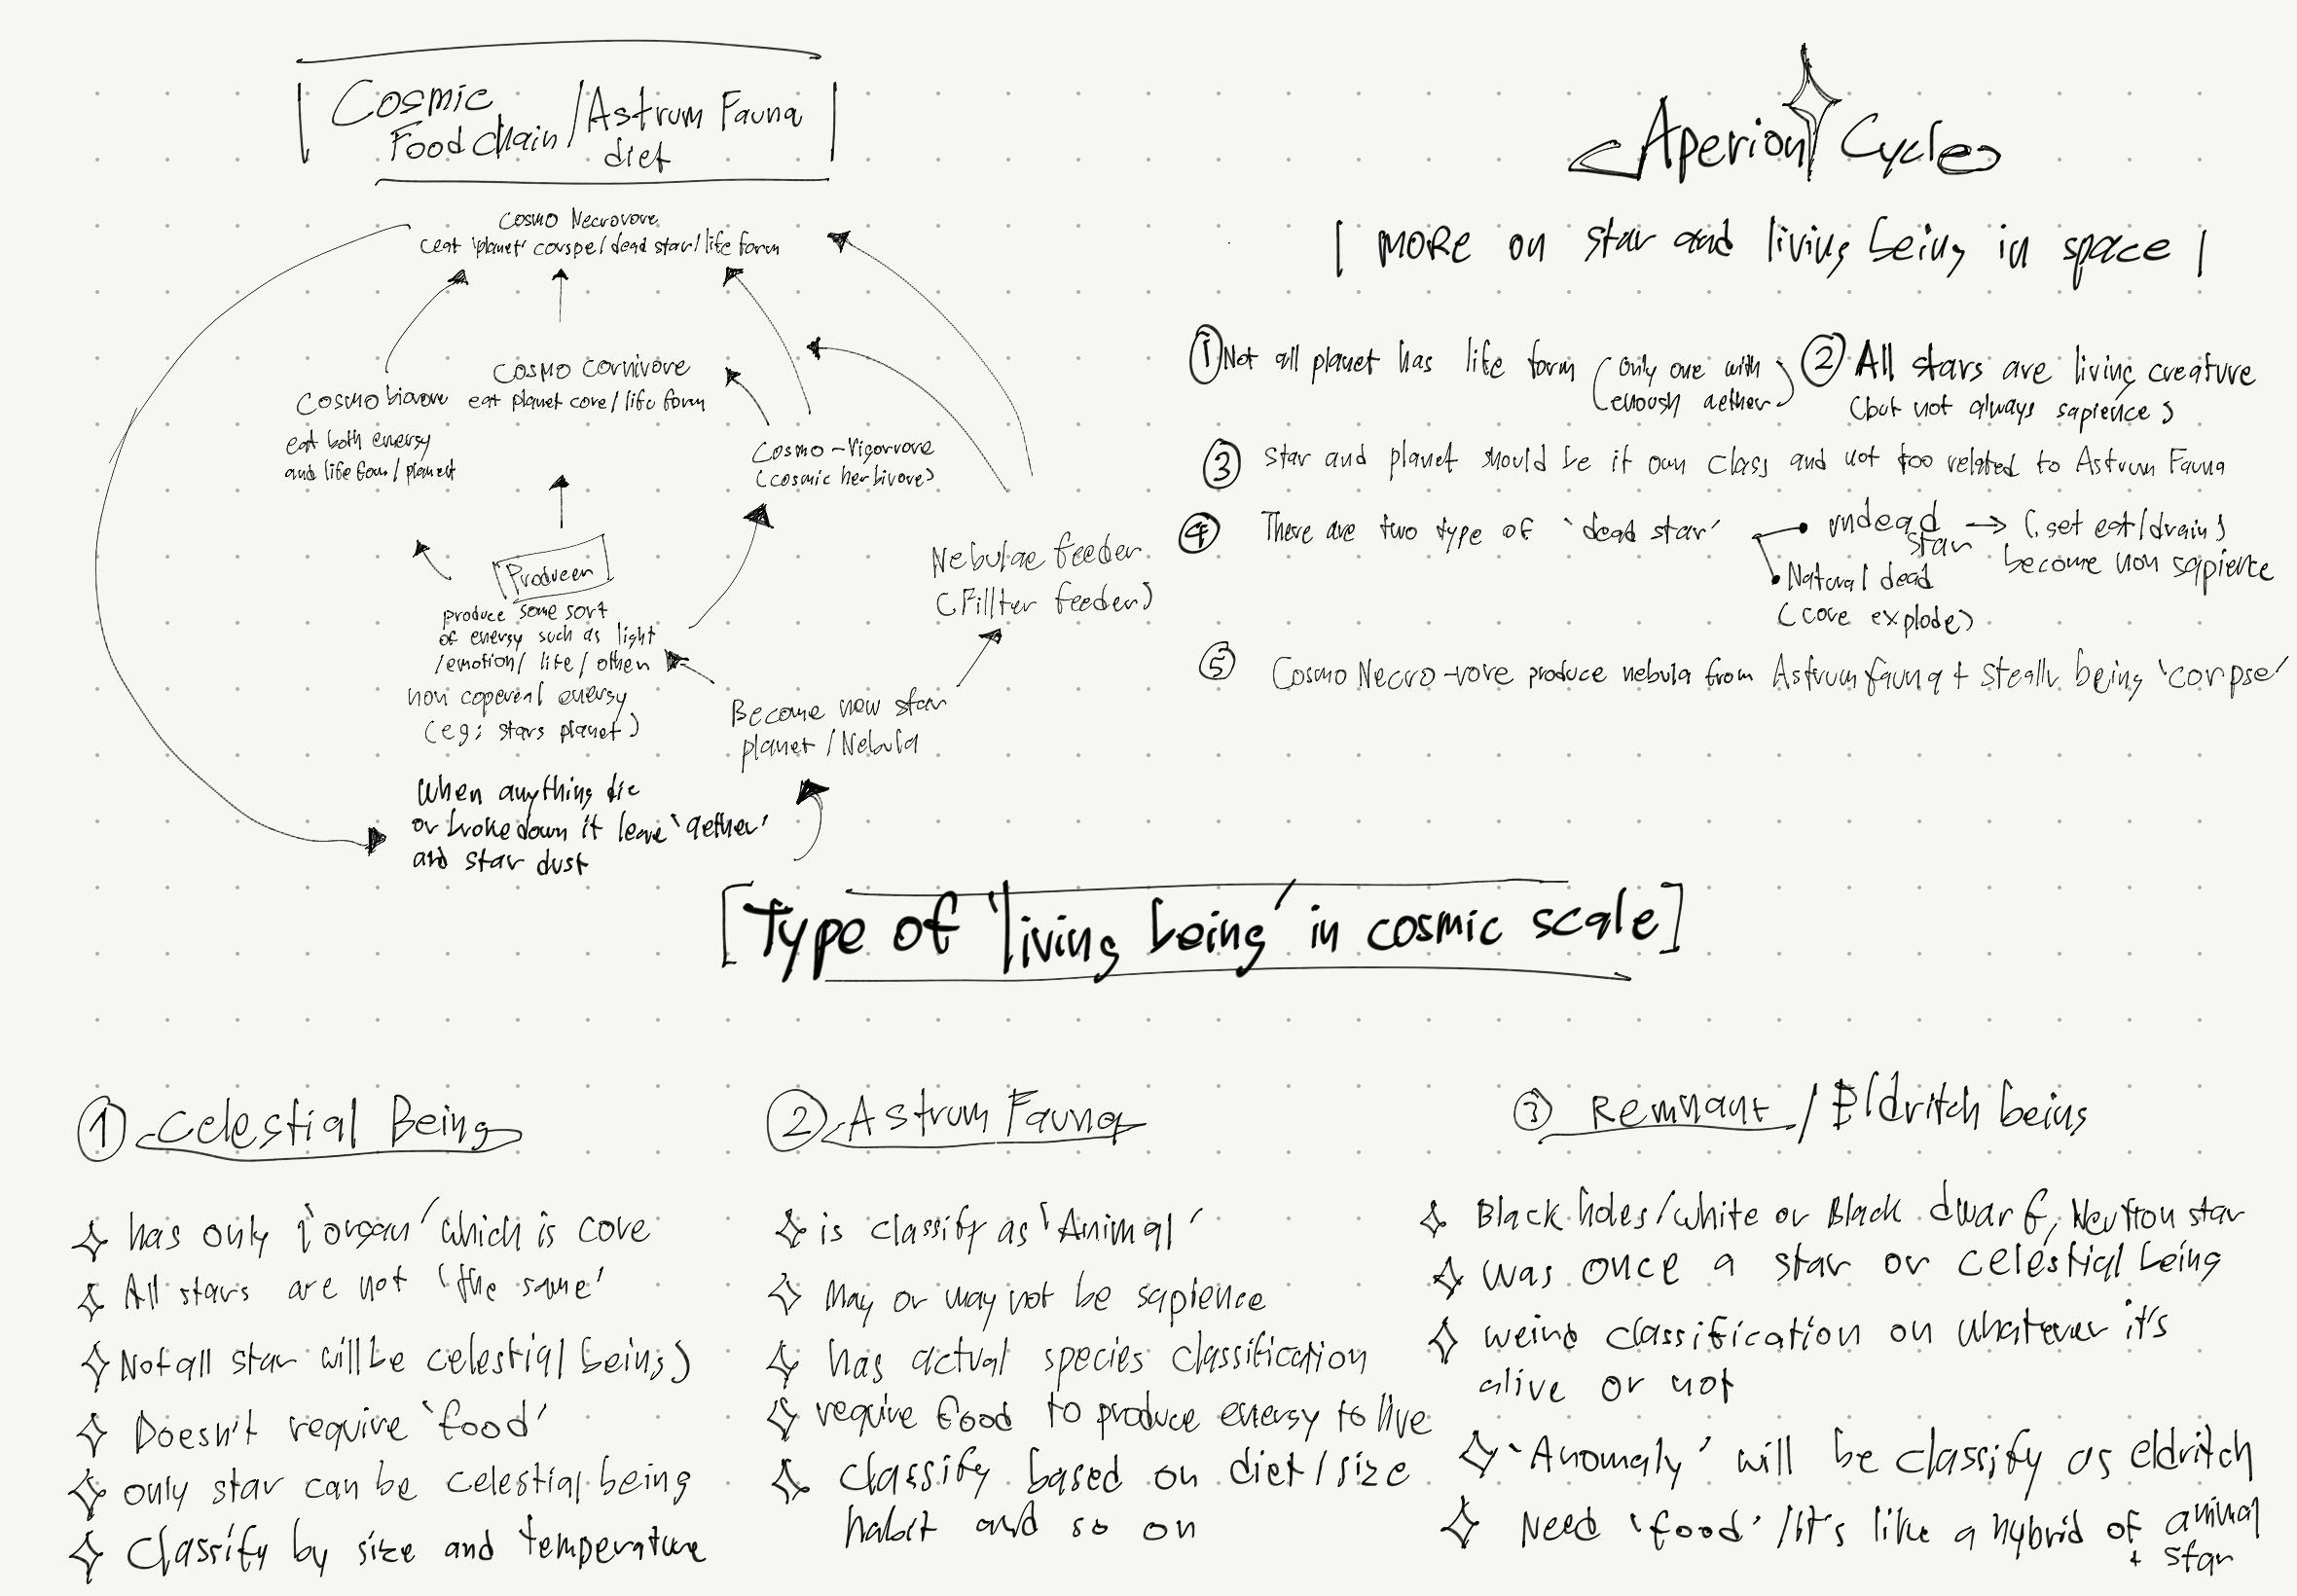 Cosmic
Food chain / Astrum Fauna
diet
Cosmo Necrovore
(eat 'planet' corspe/dead star/life form
Cosmo Cornivore
eat planet core/life form
Cosmo biovore
eat both energy
and life form/planet
Cosmo-Vigorvore
(cosmic herbivore)
Nebulae feeder
(Fillter feeder)
Producer
produce some sort
of energy such as light
/emotion/ life/other
non coporeal energy
(eg: stars planet)
Become new star
planet / Nebula
When anything die
or broke down it leave 'aether'
and star dust
Aperion Cycle
| MORE on star and living being in space |
① Not all planet has life form (only one with
enough aether)
② All stars are living creature
(but not always sapience)
③ star and planet should be it own class and not too related to Astrum Fauna
④ There are two type of 'dead star'
• undead star → (get eat/drain)
become non sapience
• Natural dead
(core explode)
⑤ Cosmo Necro-vore produce nebula from Astrum fauna + being 'corpse'
[Type of 'living being' in cosmic scale]
① Celestial Being
has only 1 'organ' which is core
All stars are not 'the same'
Not all star will be celestial being)
Doesn't require 'food'
only star can be celestial being
Classify by size and temperature
② Astrum Fauna
is classify as 'Animal'
May or may not be sapience
has actual species classification
require food to produce energy to live
Classify based on diet/size
habit and so on
③ Remnant / Eldritch being
Black holes/white or Black dwarf, Neutron star
was once a star or celestial being
weird classification on whatever it's
alive or not
'Anomaly' will be classify as eldritch
Need 'food' / it's like a hybrid of animal
+ star